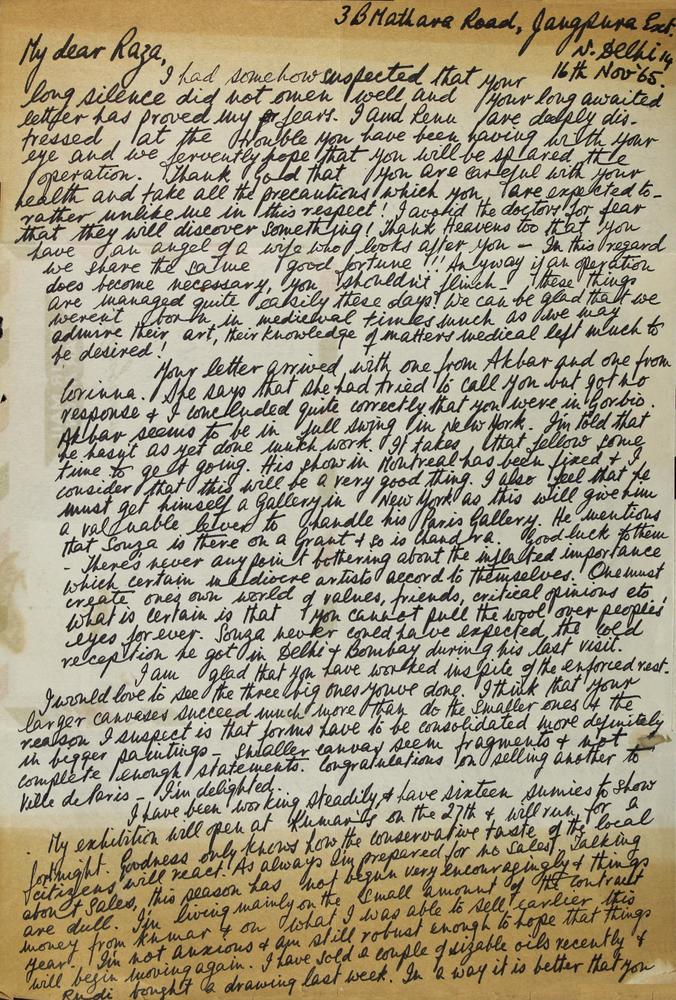 3B Mathara Road, Jangpura Ext.
N. Delhi 14
16th Nov '65.
My dear Raza,
I had somehow suspected that your
long silence did not omen well and your long awaited
letter has proved my fears. I and Renu are deeply dis-
tressed at the trouble you have been having with your
eye and we fervently hope that you will be spared the
operation. Thank God that you are careful with your
health and take all the precautions which you are expected to-
rather unlike me in this respect! I avoid the doctors for fear
that they will discover something! Thank Heavens too that you
have an angel of a wife who looks after you - In this regard
we share the same good fortune!! Anyway if an operation
does become necessary, you shouldn't flinch - these things
are managed quite easily these days. We can be glad that we
weren't born in medieval times much as we may
admire their art, their knowledge of matters medical left much to
be desired!
Your letter arrived with one from Akbar and one from
Corinna. She says that she had tried to call you but got no
response & I concluded quite correctly that you were in Gorbio.
Akbar seems to be in full swing in New York. I'm told that
he hasn't as yet done much work. It takes that fellow some
time to get going. His show in Montreal has been fixed & I
consider that this will be a very good thing. I also feel that he
must get himself a Gallery in New York as this will give him
a valuable lever to handle his Paris Gallery. He mentions
that Souza is there on a Grant & so is Chandra. Good luck to them
- There's never any point bothering about the inflated importance
which certain mediocre artists accord to themselves. One must
create ones own world of values, friends, critical opinions etc.
What is certain is that you cannot pull the wool over peoples'
eyes for ever. Souza never could have expected the cold
recaption he got in Delhi & Bombay during his last visit.
I am glad that you have worked inspite of the enforced rest.
I would love to see the three big ones youve done. I think that your
larger canvases succeed much more than do the smaller ones & the
reason I suspect is that forms have to be consolidated more definitely
in bigger paintings - Smaller canvas seem fragments & not
complete enough statements. Congratulations on selling another to
Ville de Paris - I'm delighted.
I have been working steadily & have sixteen sumies to show
. My exhibition will open at Kumar's on the 27th & will run for a
fortnight. Goodness only knows how the conservative taste of the local
citizens will react. As always I'm prepared for no sales. Talking
about sales, this season has not begun very encouragingly & things
are dull. I'm living mainly on the small amount of the contract
money from Kumar & on what I was able to sell earlier this
year. I'm not anxious & am still robust enough to hope that things
will begin moving again. I have sold a couple of sizable oils recently &
Rudi bought a drawing last week. In a way it is better that you